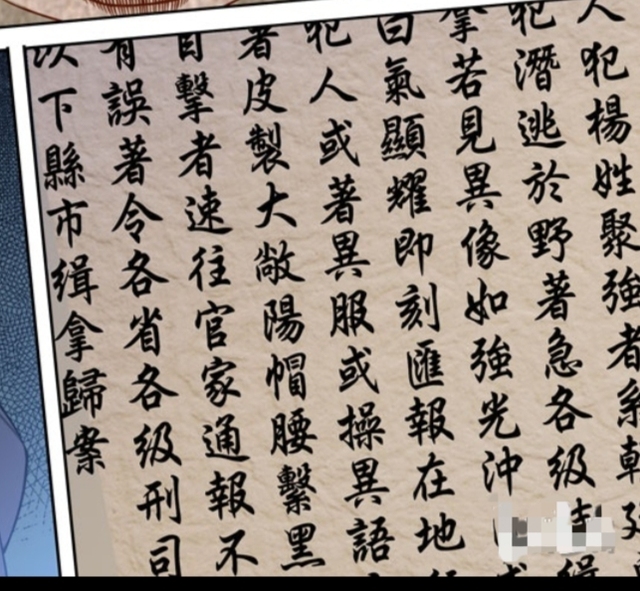 人犯楊姓聚強者系朝廷
犯潛逃於野著急各級
拿若見異像如強光沖
白氣顯耀即刻匯報在地
犯人或著異服或操異語
著皮製大敞陽帽腰繫黑
目擊者速往官家通報不
有誤著令各省各級刑司
以下縣市缉拿歸案